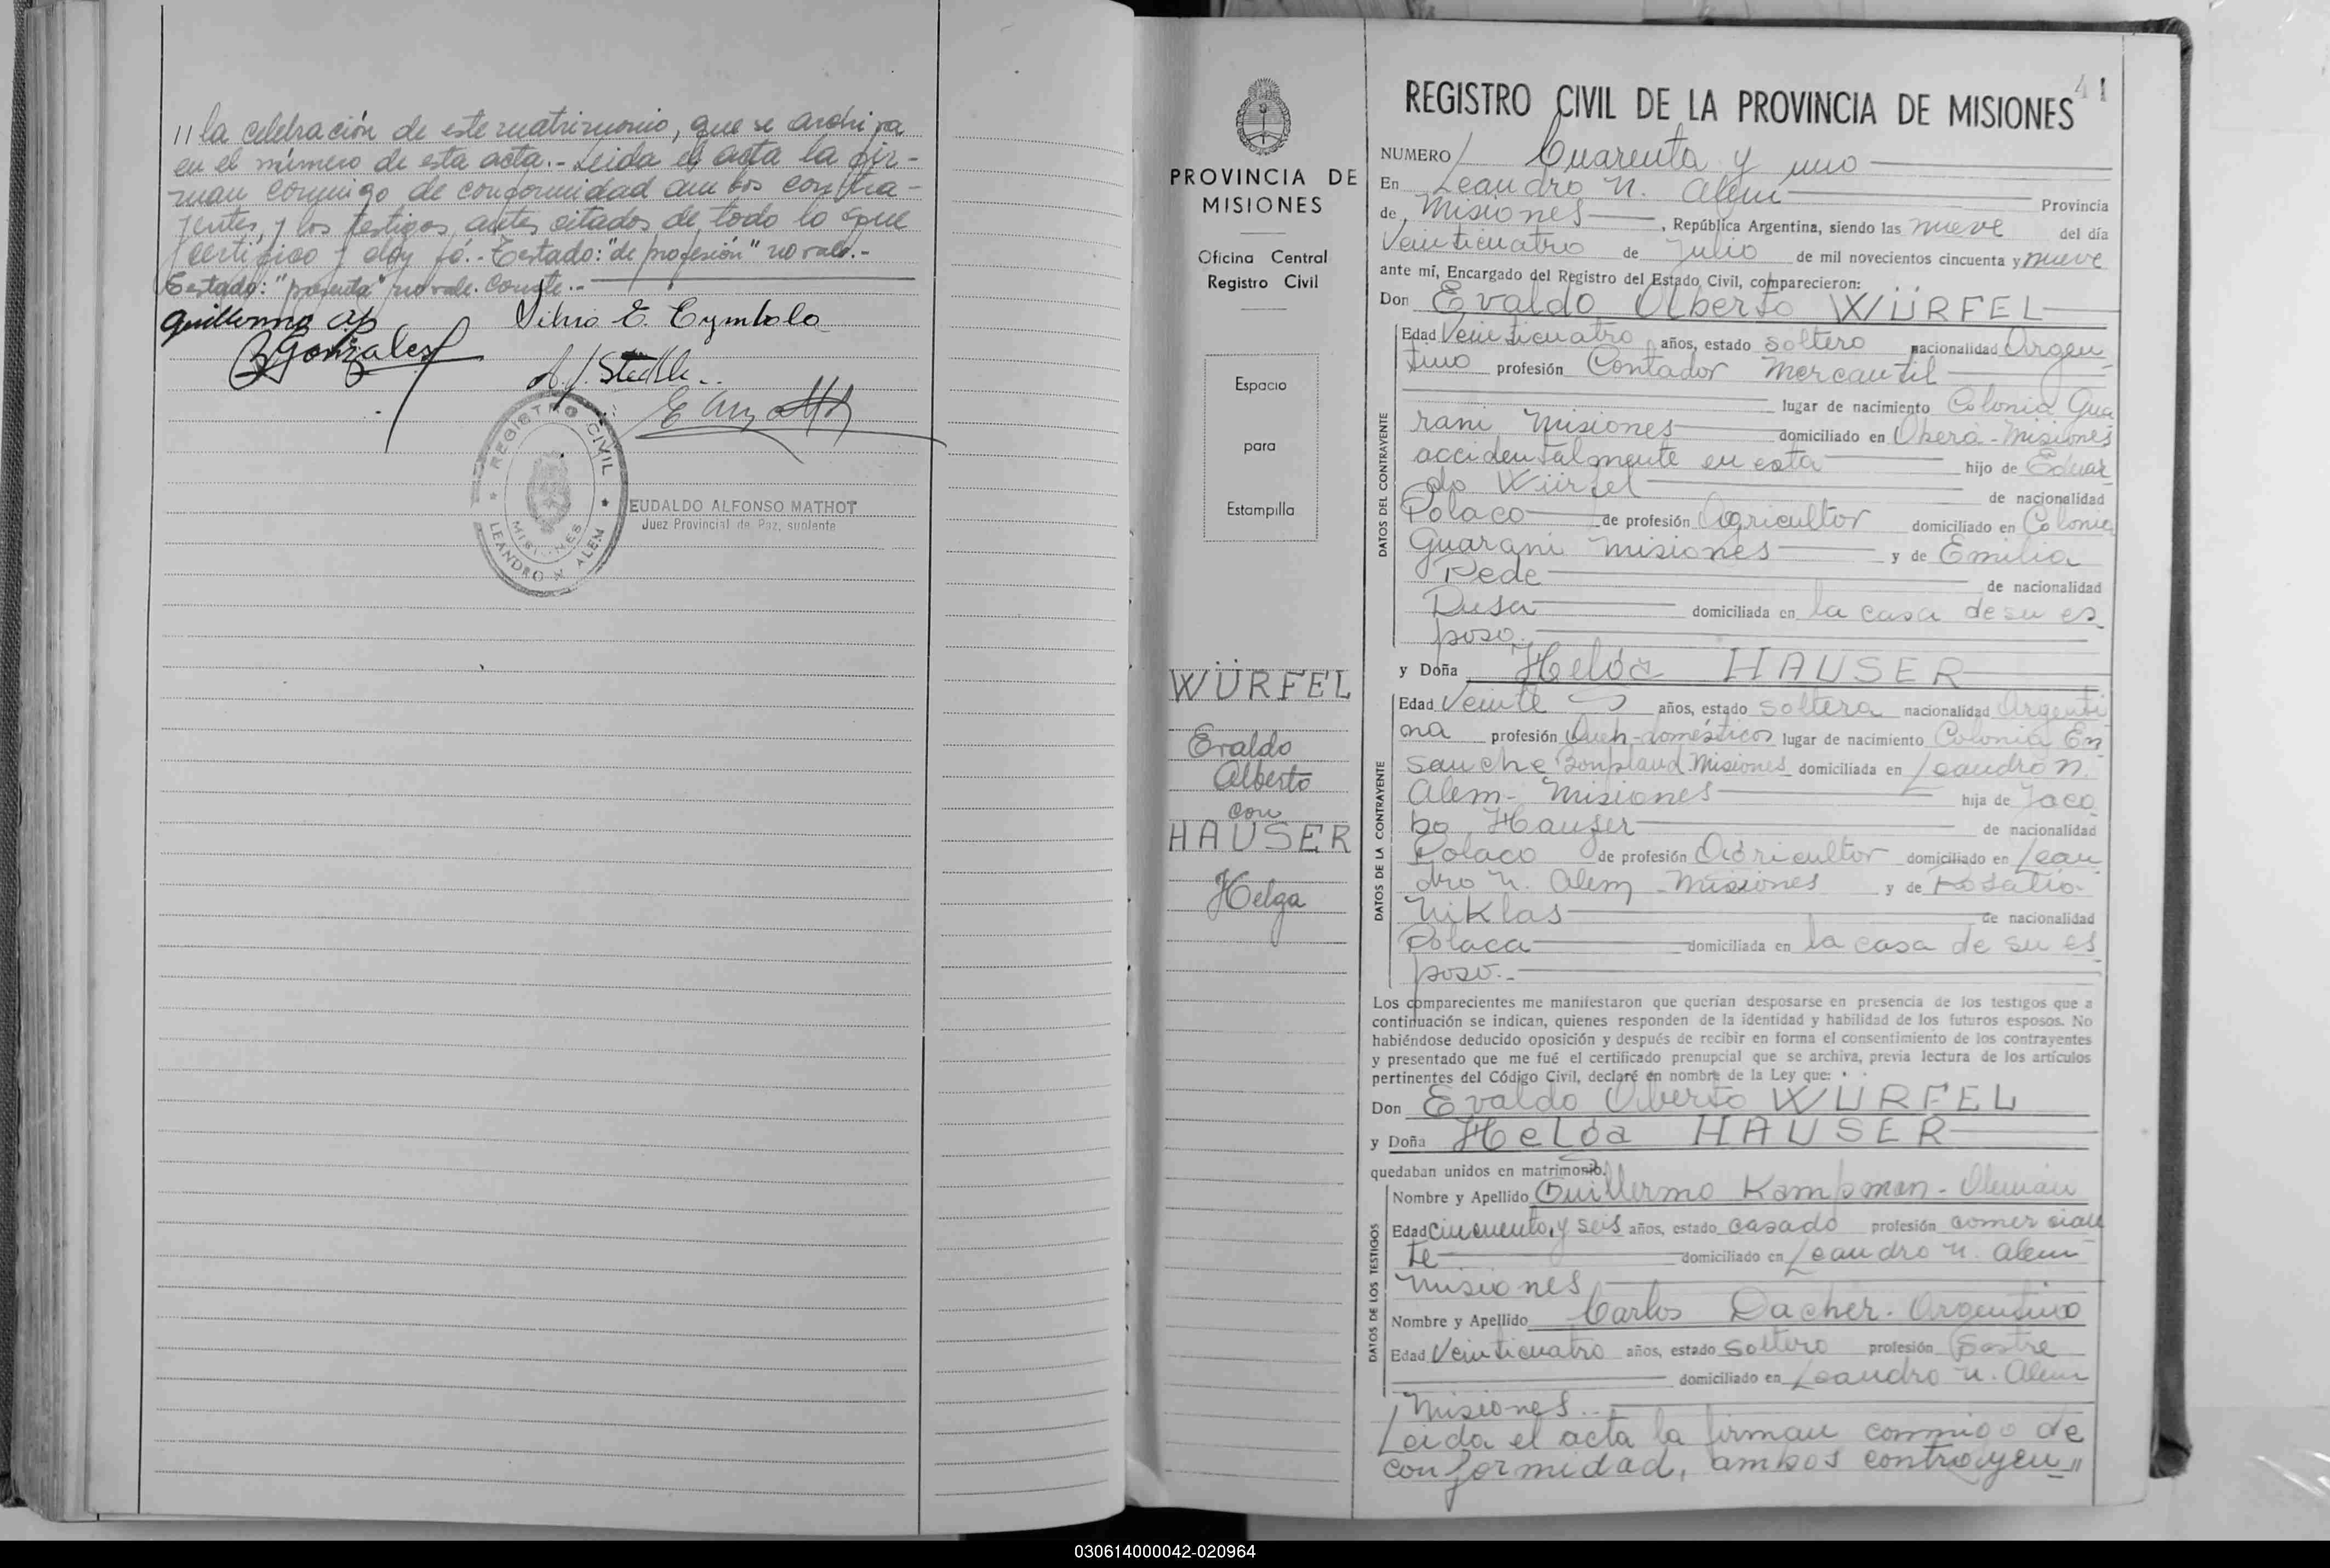 // la celebración de este matrimonio, que se archiva
en el número de esta acta.- Leida el acta la fir-
man conmigo de conformidad ambos contra-
yentes, y los testigos antes citados de todo lo que
certifico y doy fé.- Testado: "de profesión" no vale.-
Testado: "presenta" no vale. Conste.-
Guillermo
Gonzales
Silvio E. Cymbala
REGISTRO CIVIL
MISIONES
LEANDRO N ALEM
EUDALDO ALFONSO MATHOT
Juez Provincial de Paz, suplente
PROVINCIA DE
MISIONES
Oficina Central
Registro Civil
Espacio
para
Estampilla
WÜRFEL
Evaldo
Alberto
con
HAUSER
Helga
41
REGISTRO CIVIL DE LA PROVINCIA DE MISIONES
NUMERO Cuarenta y uno
En Leandro N. Alem Provincia
de Misiones, República Argentina, siendo las nueve del día
Veinticuatro de Julio de mil novecientos cincuenta y nueve
ante mí, Encargado del Registro del Estado Civil, comparecieron:
Don Evaldo Alberto WÜRFEL
Edad Veinticuatro años, estado soltero nacionalidad Argen
tino profesión Contador Mercantil
lugar de nacimiento Colonia Gua
rani Misiones domiciliado en Oberá - Misiones
accidentalmente en esta hijo de Eduar
do Würfel de nacionalidad
Polaco de profesión Agricultor domiciliado en Colonia
Guarani Misiones y de Emilia
Rede de nacionalidad
Rusa domiciliada en la casa de su es
poso.
y Doña Helga HAUSER
Edad Veinte años, estado soltera nacionalidad Argenti
na profesión Queh-domésticos lugar de nacimiento Colonia En
sanche Bonpland Misiones domiciliada en Leandro N.
Alem - Misiones hija de Jaco
bo Hauser de nacionalidad
Polaco de profesión Agricultor domiciliado en Lean
dro N. Alem - Misiones y de Rosalia
Niklas de nacionalidad
Polaca domiciliada en la casa de su es
poso.-
Los comparecientes me manifestaron que querían desposarse en presencia de los testigos que a
continuación se indican, quienes responden de la identidad y habilidad de los futuros esposos. No
habiéndose deducido oposición y después de recibir en forma el consentimiento de los contrayentes
y presentado que me fué el certificado prenupcial que se archiva, previa lectura de los artículos
pertinentes del Código Civil, declaré en nombre de la Ley que:
Don Evaldo Alberto WURFEL
y Doña Helga HAUSER
quedaban unidos en matrimonio.
Nombre y Apellido Guillermo Kampman - Alemán
Edad cincuenta y seis años, estado casado profesión comercian
te domiciliado en Leandro N. Alem
Misiones
Nombre y Apellido Carlos Dacher - Argentino
Edad Veinticuatro años, estado Soltero profesión Sastre
domiciliado en Leandro N. Alem
Misiones.-
Leida el acta la firman conmigo de
conformidad, ambos contrayen //
DATOS DEL CONTRAYENTE
DATOS DE LA CONTRAYENTE
DATOS DE LOS TESTIGOS
030614000042-020964